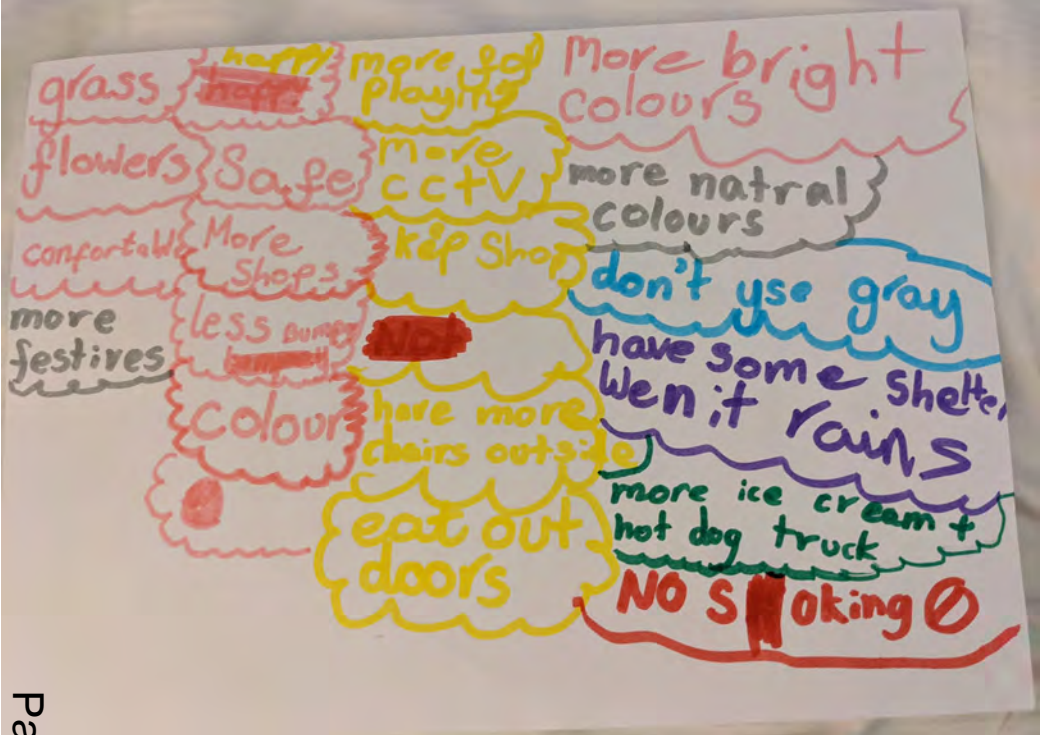 grass
flowers
confortable
more
festives
happy
Safe
More
Shops
less bumpy
colour
more for
playing
more
cctv
kep Shop
Not
have more
chairs outside
eat out
doors
More bright
colours
more natral
colours
don't use gray
have some Shelter
Wen it rains
more ice cream +
hot dog truck
NO S oking
Pa